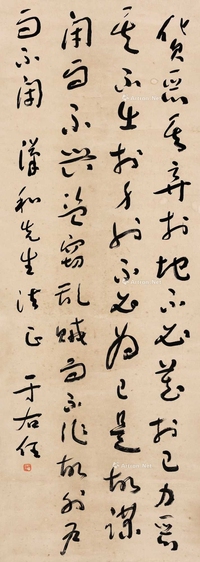 貨惡其棄於地不必藏於己力惡
其不出於身也不必為己是故謀
閉而不興盜竊亂賊而不作故外戶
而不閉 漢和先生法正 于右任